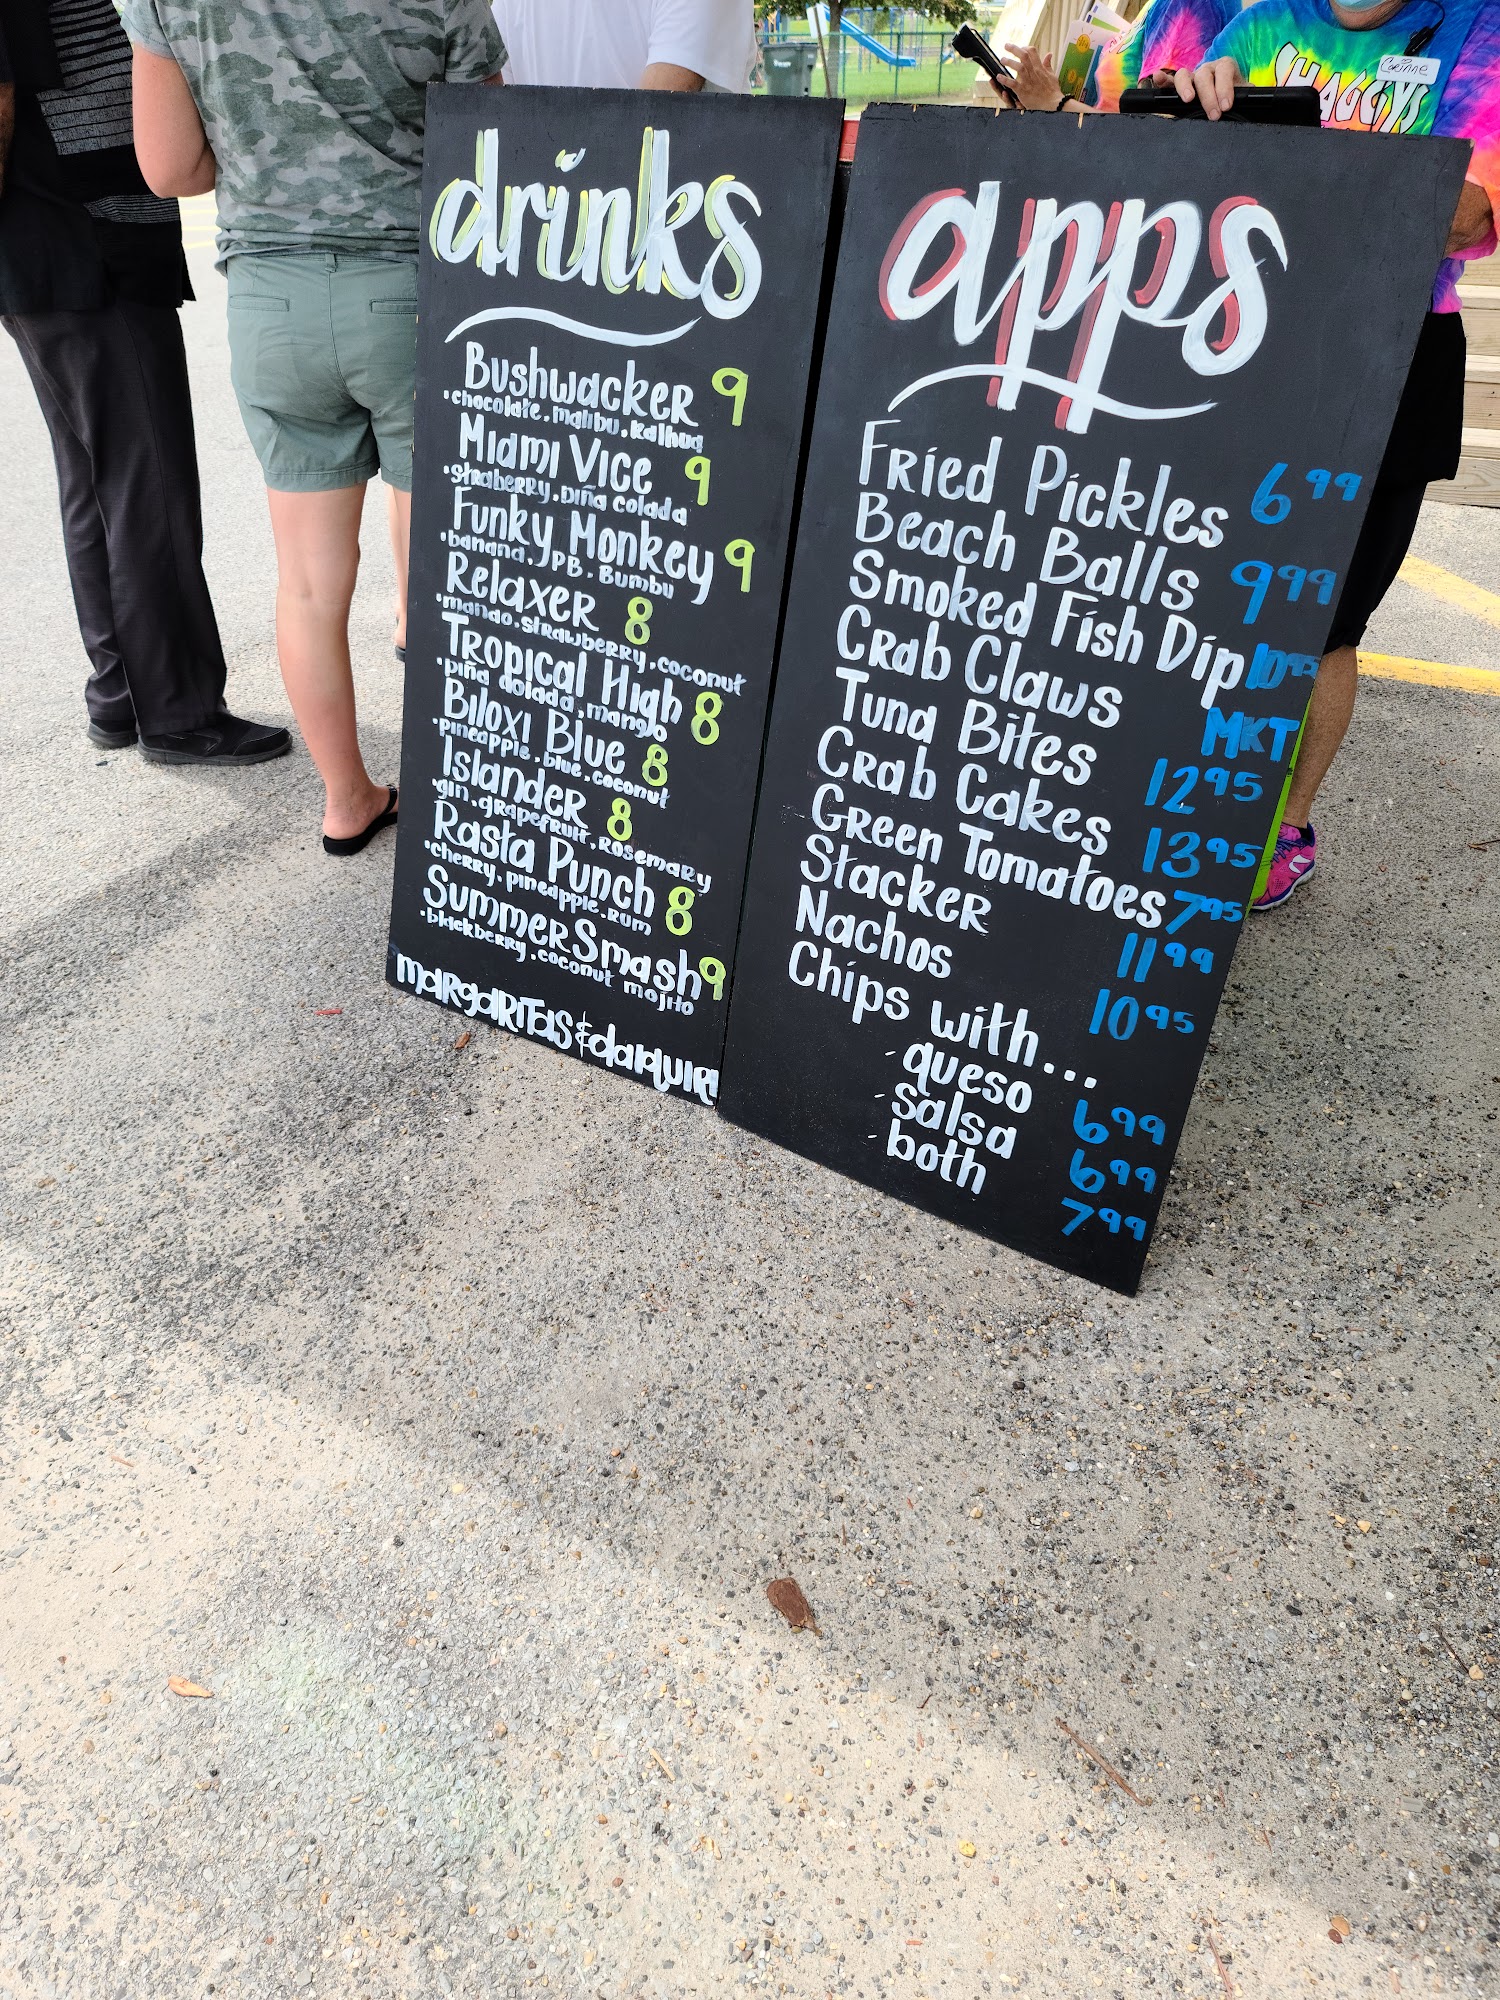 drinks
Bushwacker 9
·chocolate.malibu.kalhua
Miami Vice 9
·straberry.piña colada
Funky Monkey 9
·banana.PB.Bumbu
Relaxer 8
·mango.strawberry.coconut
Tropical High 8
·piña dolada.mango
Biloxi Blue 8
·pineapple.blue.coconut
Islander 8
·gin.grapefruit.rosemary
Rasta Punch 8
·cherry.pineapple.rum
Summer Smash 9
·blackberry.coconut mojito
margaritas &
apps
Fried Pickles 6 99
Beach Balls 9 99
Smoked Fish Dip 10 95
Crab Claws MKT
Tuna Bites 12 95
Crab Cakes 13 95
Green Tomatoes 7 95
Stacker 11 99
Nachos 10 95
Chips with...
· queso 6 99
· salsa 6 99
· both 7 99
SHAGGY'S
Corinne